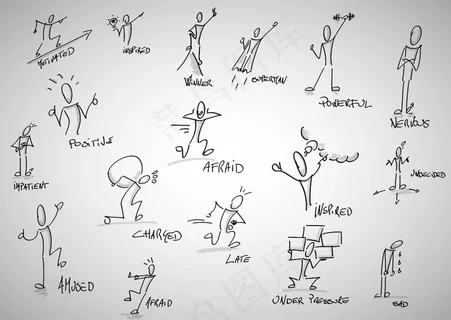 MOTIVATED
INSPIRED
WINNER
SUPERMAN
POWERFUL
NERVOUS
POSITIVE
IMPATIENT
AFRAID
UNDECIDED
CHARGED
INSPIRED
LATE
AMUSED
AFRAID
UNDER PRESSURE
SAD